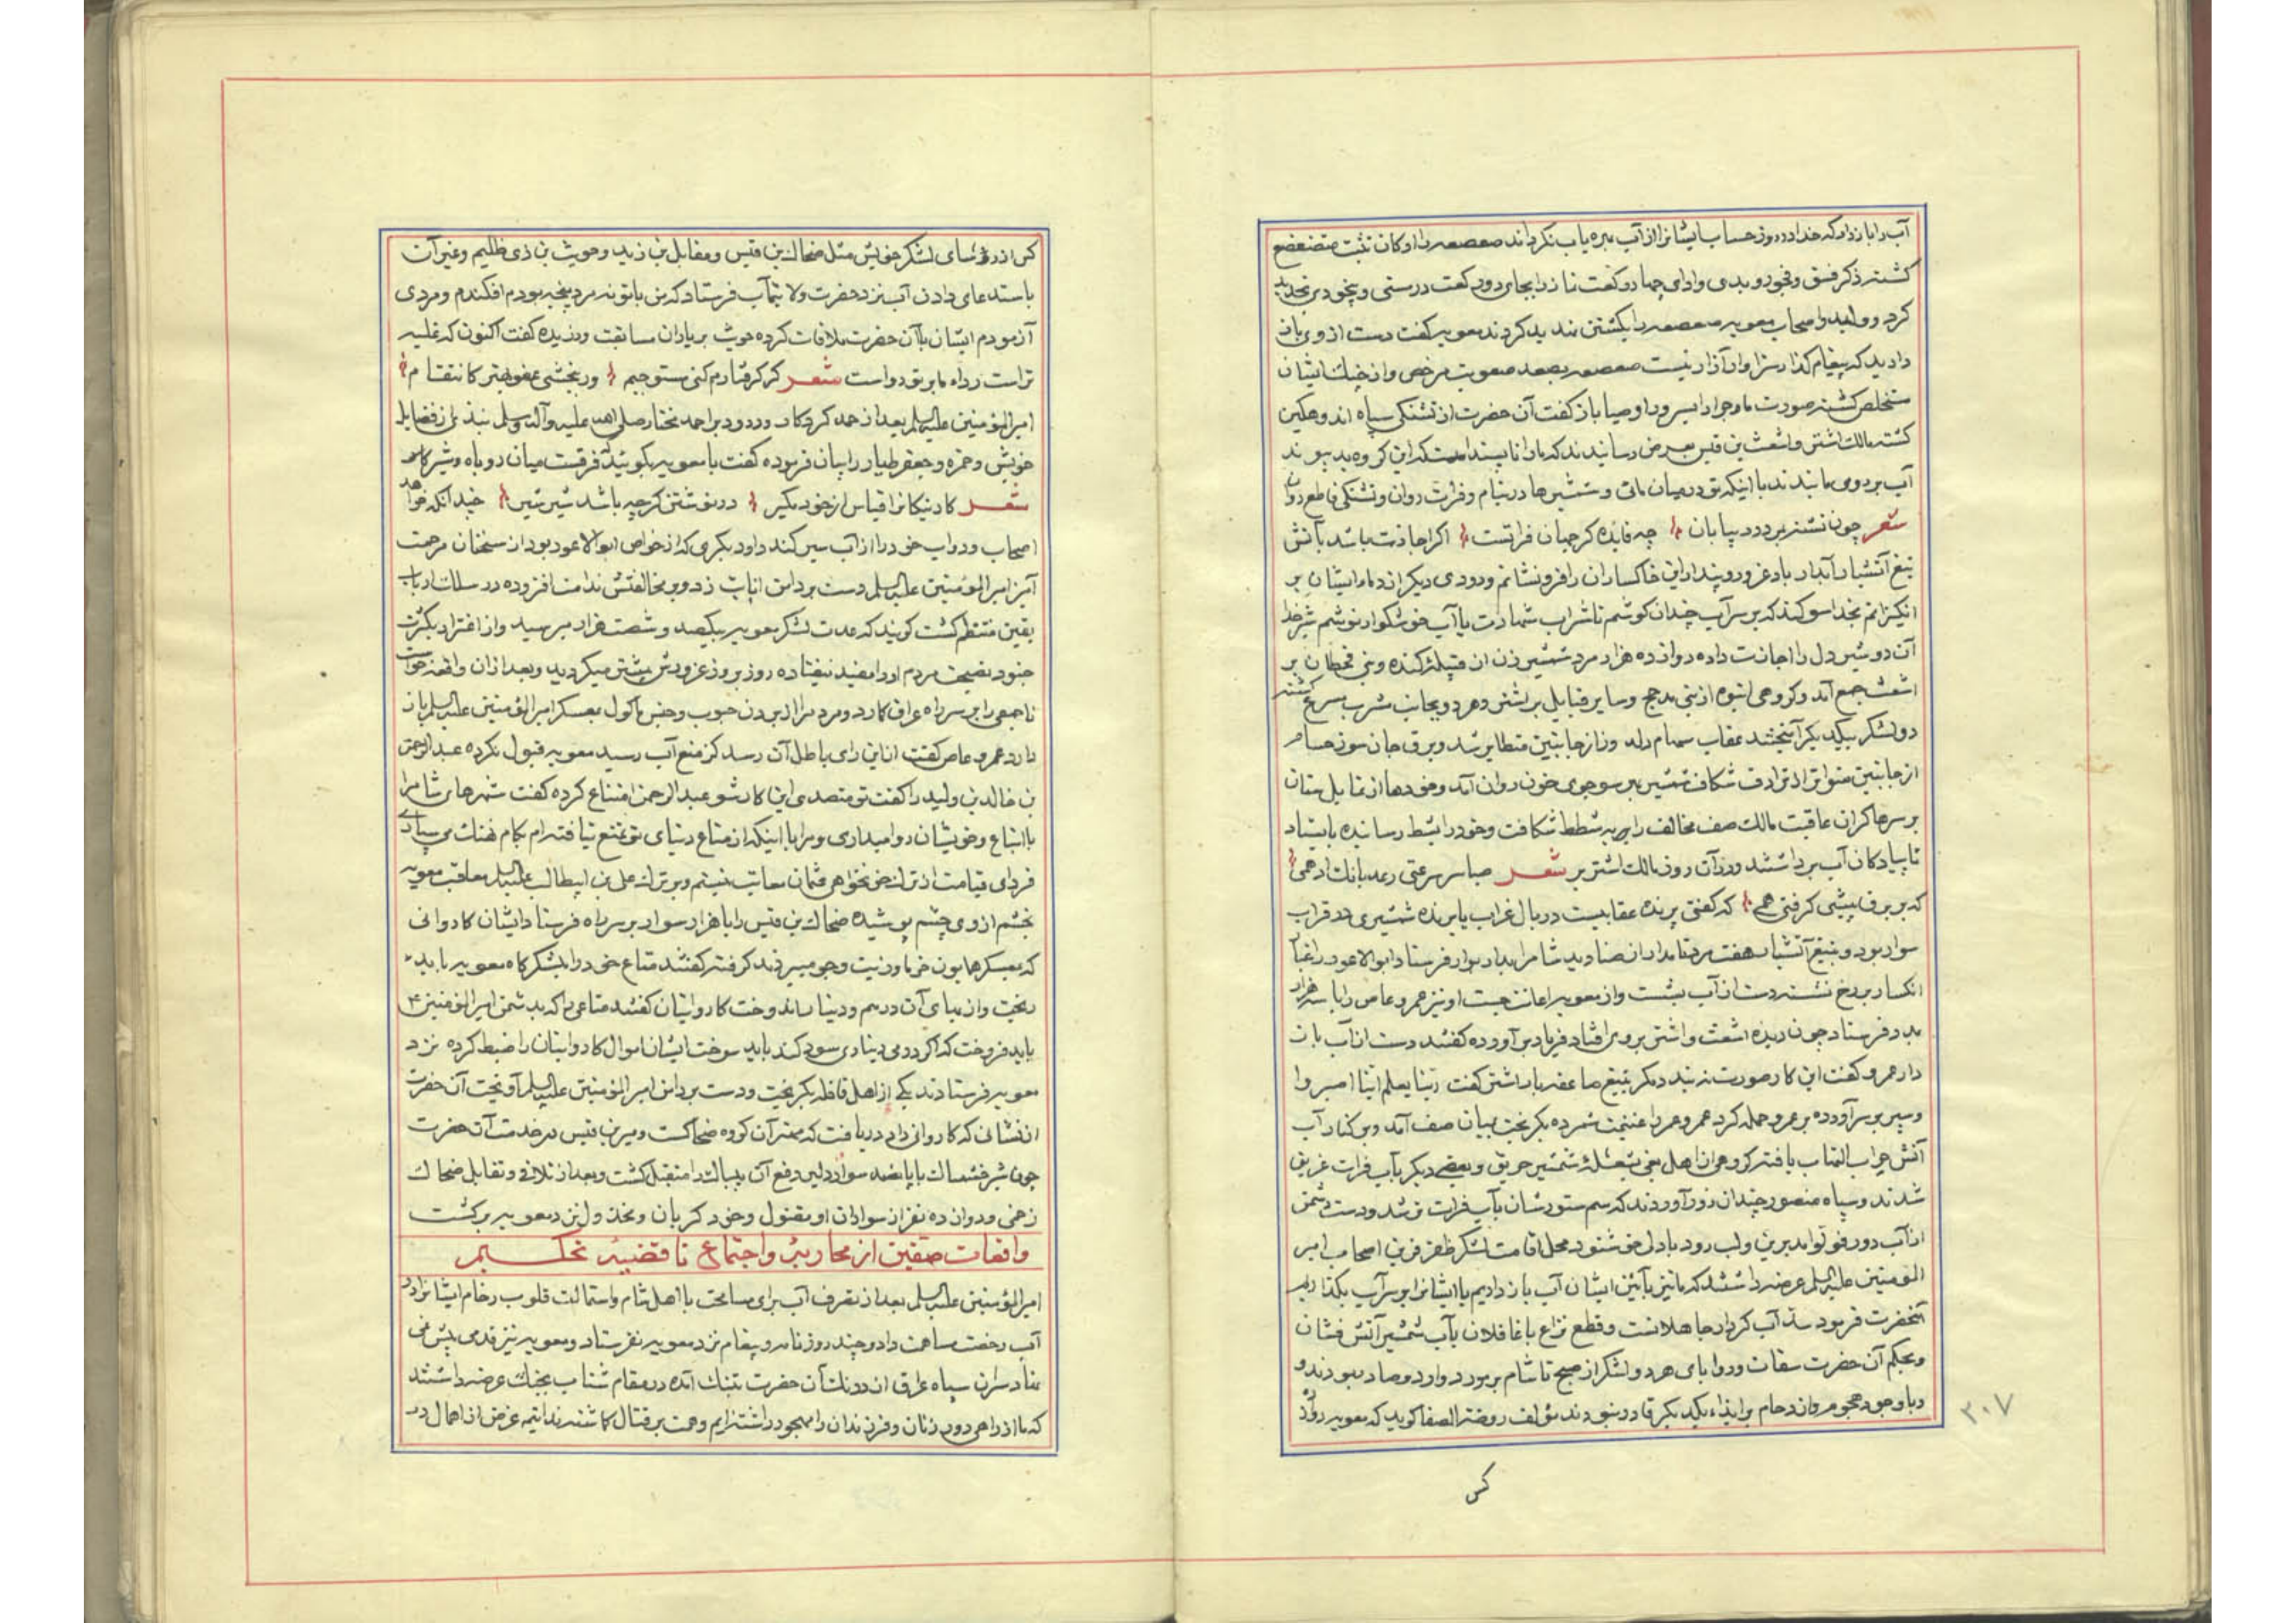 آب را باز دار که خدا در روز حساب ایشانرا از آب بهره یاب نکرداند صعصعه را ارکان تثبت متضعضع
کشته ذکر فسق و فجور و بدی و ادای چهار رکعت نماز را بجای دو رکعت در مستی و بیخودی تجدید
کرد و ولید و اصحاب معویه صعصعه را بکشتن تهدید کردند معویه کفت دست از وی باز
دارید که پیغام کذار سزاوار آزار نیست صعصعه بصد صعوبت مرخص و از چنک ایشان
متخلص کشته صورت ماجرا را بسرور اوصیا باز کفت آن حضرت از تشنکی سپاه اندوهکین
کشته مالک اشتر و اشعث بن قیس بعرض رسانیدند که ما را ناپسند است که این کروه بد پیوند
آب بر روی ما بندند با اینکه تو در میان مائی و شمشیرها در نیام و فرات روان و تشنکی قاطع روان
شعر چون تشنه بمیرد در بیابان چه فایده کر جهان فراتست اکر اجازت باشد بآتش
تیغ آتشبار آبدار باد غرور و پندار این خاکساران را فرو نشانم و دودی دیکر از دمار ایشان بر
انکیزانم بخدا سوکند که بر سر آب چندان کوشم تا شراب شهادت یا آب خوشکوار نوشم شیر خدا
آن دو شیر دل را اجازت داده دوازده هزار مرد شمشیر زن از قبیله کنده و بنی قحطان بر
اشعث جمع آمد و کروهی انبوه از بنی مدحج و سایر قبایل بر اشتر و هر دو بجانب شرب مسرع کشته
دو لشکر بیکدیکر آمیختند عقاب سهام دلدوز از جانبین متطایر شد و برق جان سوز حسام
از جانبین متواتر از ترادف شکاف شمشیر هر سو جوی خون روان آمد و خودها از تمایل سنان
بر سرها کران عاقبت مالک صف مخالف را بشطط شکافت و خود را بشط رسانیده بایستاد
تا پیادکان آب برداشتند و در آن روز مالک اشتر بر شعر صبا سرعتی رعد بانک ادهمی
که بر برق پیشی کرفتی همی که کفتی پرنده عقابیست در بال غراب یا برنده شمشیری در قراب
سوار بود و بتیغ آتشبار هفت مرد نامدار از صنادید شام را بدار بوار فرستاد ابو الاعور را غبار
انکسار بر رخ نشسته دست از آب بشست و از معویه اعانت جست او نیز عمرو عاص را با سه هزار
مدد فرستاد چون دیده اشعث و اشتر بر وی افتاد فریاد بر آورده کفتند دست از آب باز
دار عمرو کفت این کار صورت نه بندد مکر بتیغ صاعقه بار اشتر کفت ربنا یعلم اینا اصبر و ا
و سپر بر سر آورده بر عمرو حمله کرد عمرو عمر را غنیمت شمرده بکریخت بمیان صف آمد و بر کنار آب
آتش حراب التهاب یافته کروهی از اهل بغی بشعله شمشیر حریق و بعضی دیکر بآب فرات غریق
شدند و سپاه منصور چندان زور آوردند که سم ستورشان بآب فرات تر شد و دست دشمن
از آب دور و لب رود با دل خوشنود محل اقامت لشکر ظفر قرین اصحاب امیر
المومنین علیه السلم عرضه داشتند که ما نیز بآئین ایشان آب باز داریم یا ایشانرا بر سر آب بکذاریم
آنحضرت فرمود سد آب کردار جاهلانست و قطع نزاع با غافلان بآب شمشیر آتش فشان
و بحکم آن حضرت سقات و روایای هر دو لشکر از صبح تا شام بر مورد وارد و صادر بودند و
و با وجود هجوم و ازدحام بر ایذاء یکدیکر قادر نبودند مؤلف روضة الصفا کوید که معویه دوازده
۳۰۷
کس
کس از رؤسای لشکر خویش مثل ضحاک بن قیس و مقاتل بن زید و حوشب بن ذی ظلیم و غیر آن
باستدعای دادن آب نزد حضرت ولایتمآب فرستاد که من با تو نه مرد پنجه بودم افکندم و مردی
آزمودم ایشان با آن حضرت ملاقات کرده حوشب بر یاران مسابقت ورزیده کفت اکنون که غلبه
تراست زداه ما بر تو رواست شعر کر کرفتارم کنی مستوجبم ور ببخشی عفو بهتر کانتقام
امیر المؤمنین علیه السلم بعد از حمد کردکار و درود بر احمد مختار صلی الله علیه و آله وسلم نبذی از فضایل
خویش و حمزه و جعفر طیار را بیان فرموده کفت با معویه بکوئید فرقیست میان روباه و شیر کاسر
شعر کار نیکانرا قیاس از خود مکیر در نوشتن کرچه باشد شیر شیر چندانکه خواهد
اصحاب و دواب خود را از آب سیر کند داود بکری که از خواص ابوالاعور بود از سخنان مرحمت
آمیز امیر المؤمنین علیه السلم دست بر دامن انابت زد و بر مخالفتش ندامت افزوده در سلک ارباب
یقین منتظم کشت کویند که عدت لشکر معویه بیکصد و شصت هزار میرسید و از اغترار بکثرت
جنود نصیحت مردم او را مفید نیفتاده روز بروز غرورش بیشتر میکردید و بعد از آن واقعه خواست
تا جمعی را بر سر راه عراق کمارد و مردم را از بردن حبوب و جنس ماکول بعسکر امیر المؤمنین علیه السلم باز
دارد عمرو عاص کفت از این رای باطل آن رسد کز منع آب رسید معویه قبول نکرده عبد الرحمن
بن خالد بن ولید را کفت تو متصدی این کار شو عبد الرحمن امتناع کرده کفت شهرهای شام را
باتباع و خویشان روا میداری و مرا با اینکه از متاع دنیای تو تمتع نیافته‌ام بکام نهنک می سپاری
فردای قیامت از ترک خونخواهی عثمان معاتب نیستم و بر ترک علی بن ابیطالب علیه السلم معاقب معویه
بخشم از وی چشم پوشیده ضحاک بن قیس را با هزار سوار بر سر راه فرستاد ایشان کاروانی
که بعسکر همایون خرما و زیت و جو میبردند کرفته کفتند متاع خود را بلشکرکاه معویه باید
ریخت و از بهای آن درهم و دینار باید اندوخت کاروانیان کفتند متاعی را که بدشمن امیر المؤمنین ع
باید فروخت که اکر درمی دیناری سود کند باید سوخت ایشان اموال کاروانیان را ضبط کرده نزد
معویه فرستادند یکی از اهل قافله بکریخت و دست بر دامن امیر المؤمنین علیه السلم آویخت آن حضرت
از نشانی که کاروانی داد دریافت که مهتر آن کروه ضحاکست در خدمت آن حضرت
چون شرخشمناک با پانصد سوار دلیر دفع آن بیباک را متقبل کشت و بعد از تلاقی و تقابل ضحاک
زخمی و دوازده نفر از سواران او مقتول و خود کریزان و مخذول نزد معویه برکشت
واقعات صفین از محاربه و اجتماع تا قضیه تحکیم
امیر المؤمنین علیه السلم بعد از تصرف آب برای مسامحت با اهل شام و استمالت قلوب رخام ایشانرا در
آب رخصت مساهمت داد و چند روز نامه و پیغام نزد معویه نفرستاد و معویه نیز قدمی پیش نمی
نهاد سران سپاه عراق از درنک آن حضرت بتنک آمده در مقام شتاب بجنک عرضه داشتند
که ما از راهی دور زنان و فرزندان را مهجور داشته‌ایم و همت بر قتال کماشته ندانیم غرض از اهمال در